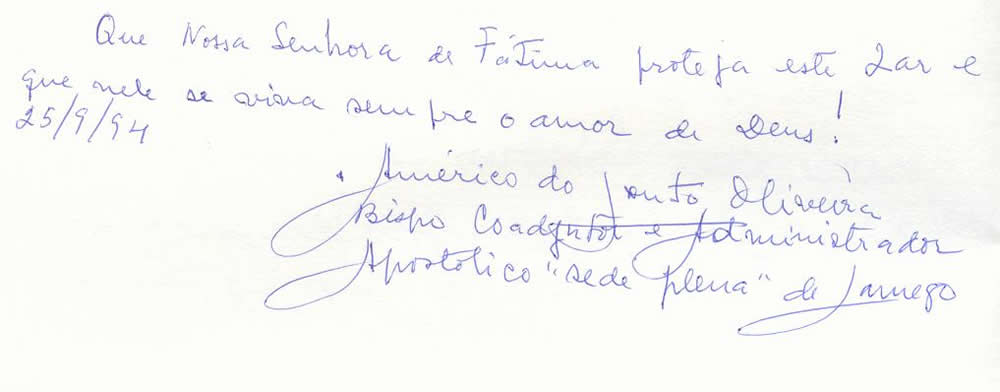 Que Nossa Senhora de Fátima proteja este Lar e
que nele se viva sempre o amor de Deus!
25/9/94
+ Américo do Couto Oliveira
Bispo Coadjutor e Administrador
Apostólico "sede plena" de Lamego